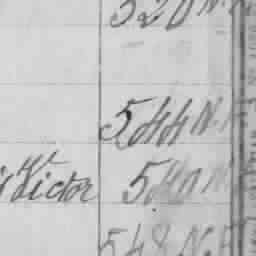 520 N.
544 N.F
W
Victor 540 N
548 N.F